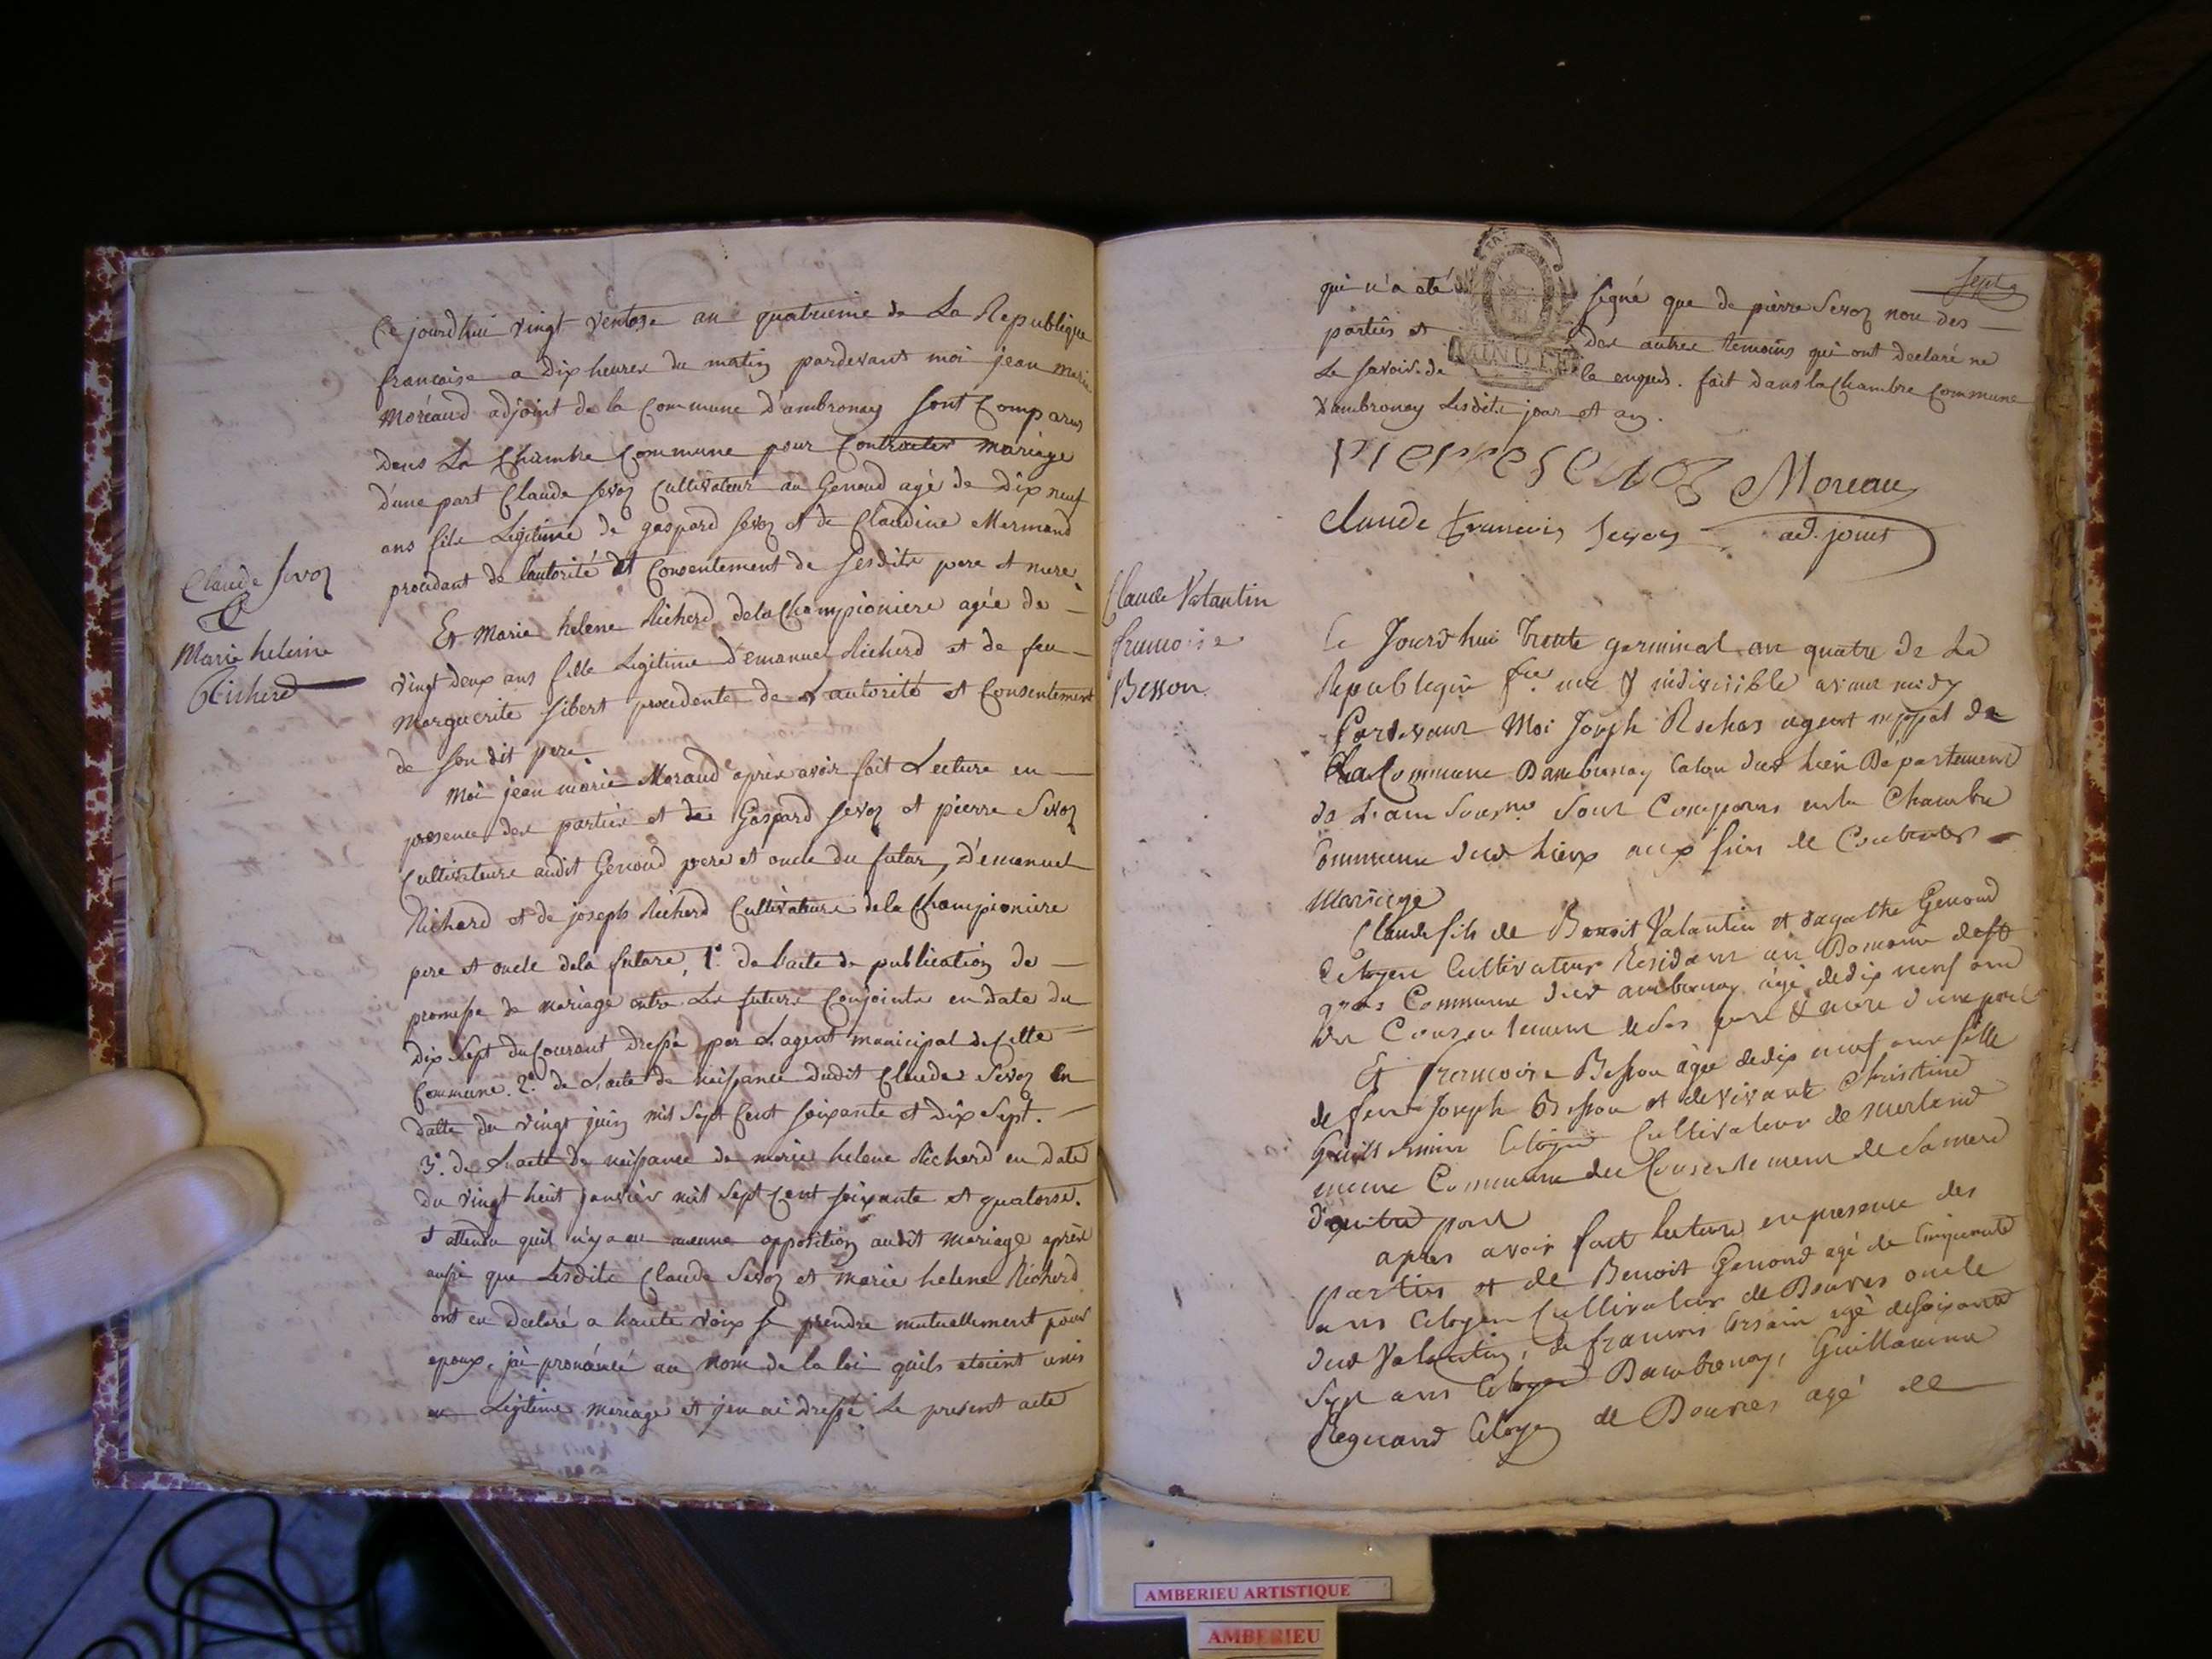 Claude Sevoz
&
Marie helene
Richerd
Ce jourdhui vingt ventose an quatrieme de La Republique
francaise a dix heures du matin pardevant moi jean marie
moréaud adjoint de la Commune d'ambronay sont Comparus
dans La Chambre Commune pour Contracter mariage
d'une part Claude Sevoz Cultivateur au Genoud agé de dix neuf
ans fils Legitime de gaspard Sevoz et de Claudine Mermand
procedant de l'autorité et Consentement de sesdits pere et mere
Et Marie helene Richerd de la Championiere agée de
vingt deux ans fille Legitime d'emanuel Richerd et de feu
Marguerite Sibert procedente de L'autorité et Consentement
de son dit pere
Moi jean marie Moraud aprés avoir fait Lecture en
presence des parties et de Gaspard Sevoz et pierre Sevoz
Cultivateurs audit Genoud pere et oncle du futur, d'emanuel
Richerd et de joseph Richerd Cultivateurs de la Championiere
pere et oncle dela future, 1°. de l'acte de publication de
promesse de mariage entre Les futurs Conjoints en date du
dix sept du Courant dressé par L'agent municipal de Cette
Commune. 2°. de L'acte de naissance dudit Claude Sevoz en
datte du vingt juin mil sept Cent soixante et dix sept.
3°. de L'acte de naissance de marie helene Richerd en date
du vingt huit janvier mil sept Cent soixante et quatorse.
et attendu quil n'y a eu aucunne opposition audit mariage aprés
aussi que Lesdits Claude Sevoz et marie helene Richerd
ont eu declaré a haute voix se prendre mutuellement pour
epoux, j'ai prononcé au nom de la loi quils etoient unis
en Légitime mariage et j'en ai dressé Le present acte
Septe
qui n'a eté signé que de pièrre Sevoz non des
partiés et des autres temoins qui ont declaré ne
Le savoir de la enquis. fait dans la Chambre Commune
d'ambronay Lesdits jour et an.
pierre sevoz Moreau
claude francois sevoz ad. joint
Claude Valantin
francoise
Besson
Ce Jourd'hui trente germinal an quatre de La
Republique fse une & indivisible avant midy
Pardevant Moi Joseph Rochas agent mppal de
La Commune Dambronay Caton dud lieu Departement
de L'ain Sousné sont Comparus en la Chambre
Commune dud lieux aux fins de Contracter
Mariage
Claude fils de Benoit Valantin et dagathe Genoud
Citoyen Cultivateur Residant au Domaine
Commune dud ambronay agé de dix neuf ans
du Consentement de ses pere & mere d'une part
Et Francoise Besson agée de dix neuf ans fille
de feu Joseph Besson et de vivante Christine
Guillermin Citoyen Cultivateur de merland
meme Commune du Consentement de sa mere
d'autre part
apres avoir fait lecture en presence des
parties et de Benoit Genoud agé de Cinquante
ans Citoyen Cultivateur de Douvres oncle
dud Valantin, de francois agé de soixante
Sept ans Citoyen Dambronay, Guillaume
Reguand Citoyen de Douvres agé de
MINUTE
AMBERIEU ARTISTIQUE
AMBERIEU